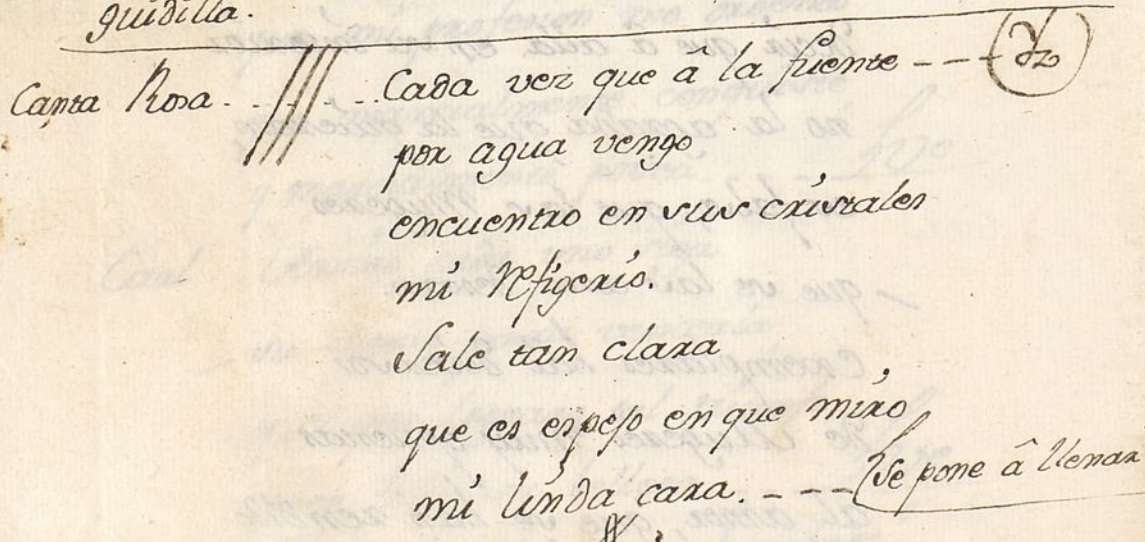 guidilla.
Canta Rosa. Cada vez que â la fuente
por agua vengo
encuentro en sus cristales
mi Refigerio.
Sale tan clara
que es espejo en que miro
mi linda cara. Se pone â llenar